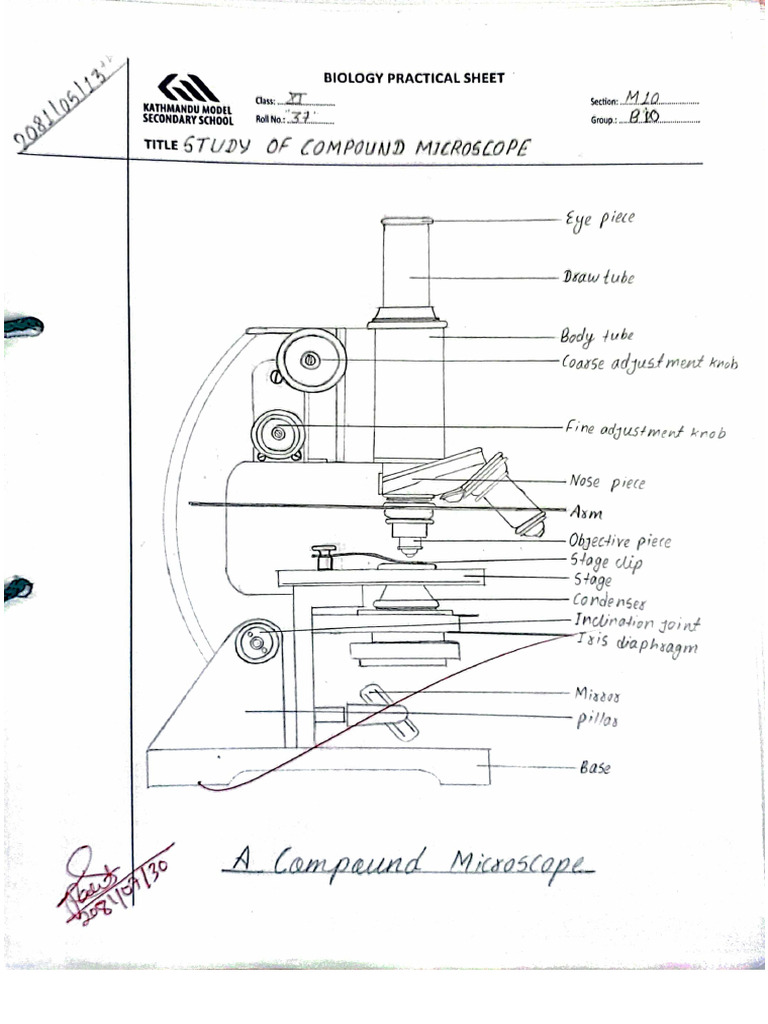 2081/05/13
BIOLOGY PRACTICAL SHEET
KATHMANDU MODEL
SECONDARY SCHOOL
Class: XI
Section: M10
Roll No.: "37"
Group: B10
TITLE STUDY OF COMPOUND MICROSCOPE
Eye piece
Draw tube
Body tube
Coarse adjustment knob
Fine adjustment knob
Nose piece
Arm
Objective piece
Stage clip
Stage
Condenser
Inclination joint
Iris diaphragm
Mirror
pillar
Base
A Compound Microscope
2081/07/30